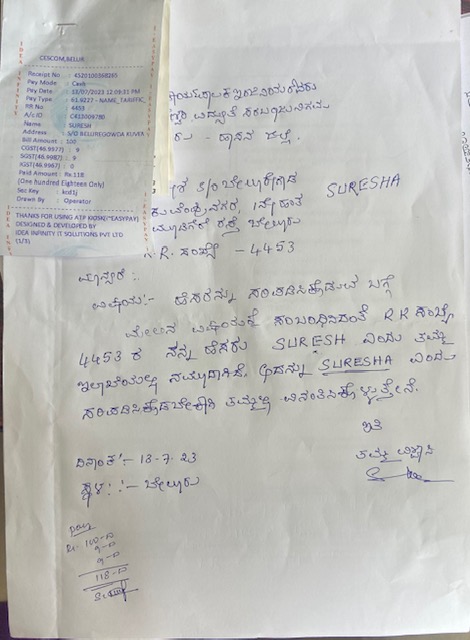 CESCOM, BELUR
Receipt No : 4320100368265
Pay Mode : Cash
Pay Date : 13/07/2023 12:09:31 PM
Pay Type : 61.9227 - NAME_TARIFFIC_
RR No : 4453
A/c ID : CR13009780
Name : SURESH
Address : S/O BELUREGOWDA KUVEN
Bill Amount : 100
CGST(46.9977) : 9
SGST(46.9987) : 9
IGST(46.9967) : 0
Paid Amount : Rs.118
(One hundred Eighteen Only)
Sec Key : kcd1j
Drawn By : Operator
THANKS FOR USING ATP KIOSK("EASYPAY)
DESIGNED & DEVELOPED BY
IDEA INFINITY IT SOLUTIONS PVT LTD
(1/3)
ರು - ಹಾಸನ ಜಿಲ್ಲೆ.
S/O ಬೇಲೂರೇಗೌಡ SURESHA
ರಸ್ತೆ ಬೇಲೂರು
R.R. ಸಂಖ್ಯೆ - 4453
ಮಾನ್ಯರೇ :-
ವಿಷಯ:- ಹೆಸರನ್ನು ಸರಿಪಡಿಸಿಕೊಡುವ ಬಗ್ಗೆ
ಮೇಲಿನ ವಿಷಯಕ್ಕೆ ಸಂಬಂಧಿಸಿದಂತೆ R R ಸಂಖ್ಯೆ
4453 ರ ನನ್ನ ಹೆಸರು SURESH ಎಂದು ತಮ್ಮ
ಇಲಾಖೆಯಲ್ಲಿ ನಮೂದಾಗಿದೆ. ಇದನ್ನು SURESHA ಎಂದು
ಸರಿಪಡಿಸಿಕೊಡಬೇಕಾಗಿ ತಮ್ಮಲ್ಲಿ ವಿನಂತಿಸಿಕೊಳ್ಳುತ್ತೇನೆ.
ಇತಿ
ದಿನಾಂಕ :- 13-7-23
ತಮ್ಮ ವಿಶ್ವಾಸಿ
ಸ್ಥಳ :- ಬೇಲೂರು
pay
Rs. 100-0
9-0
9-0
118-0